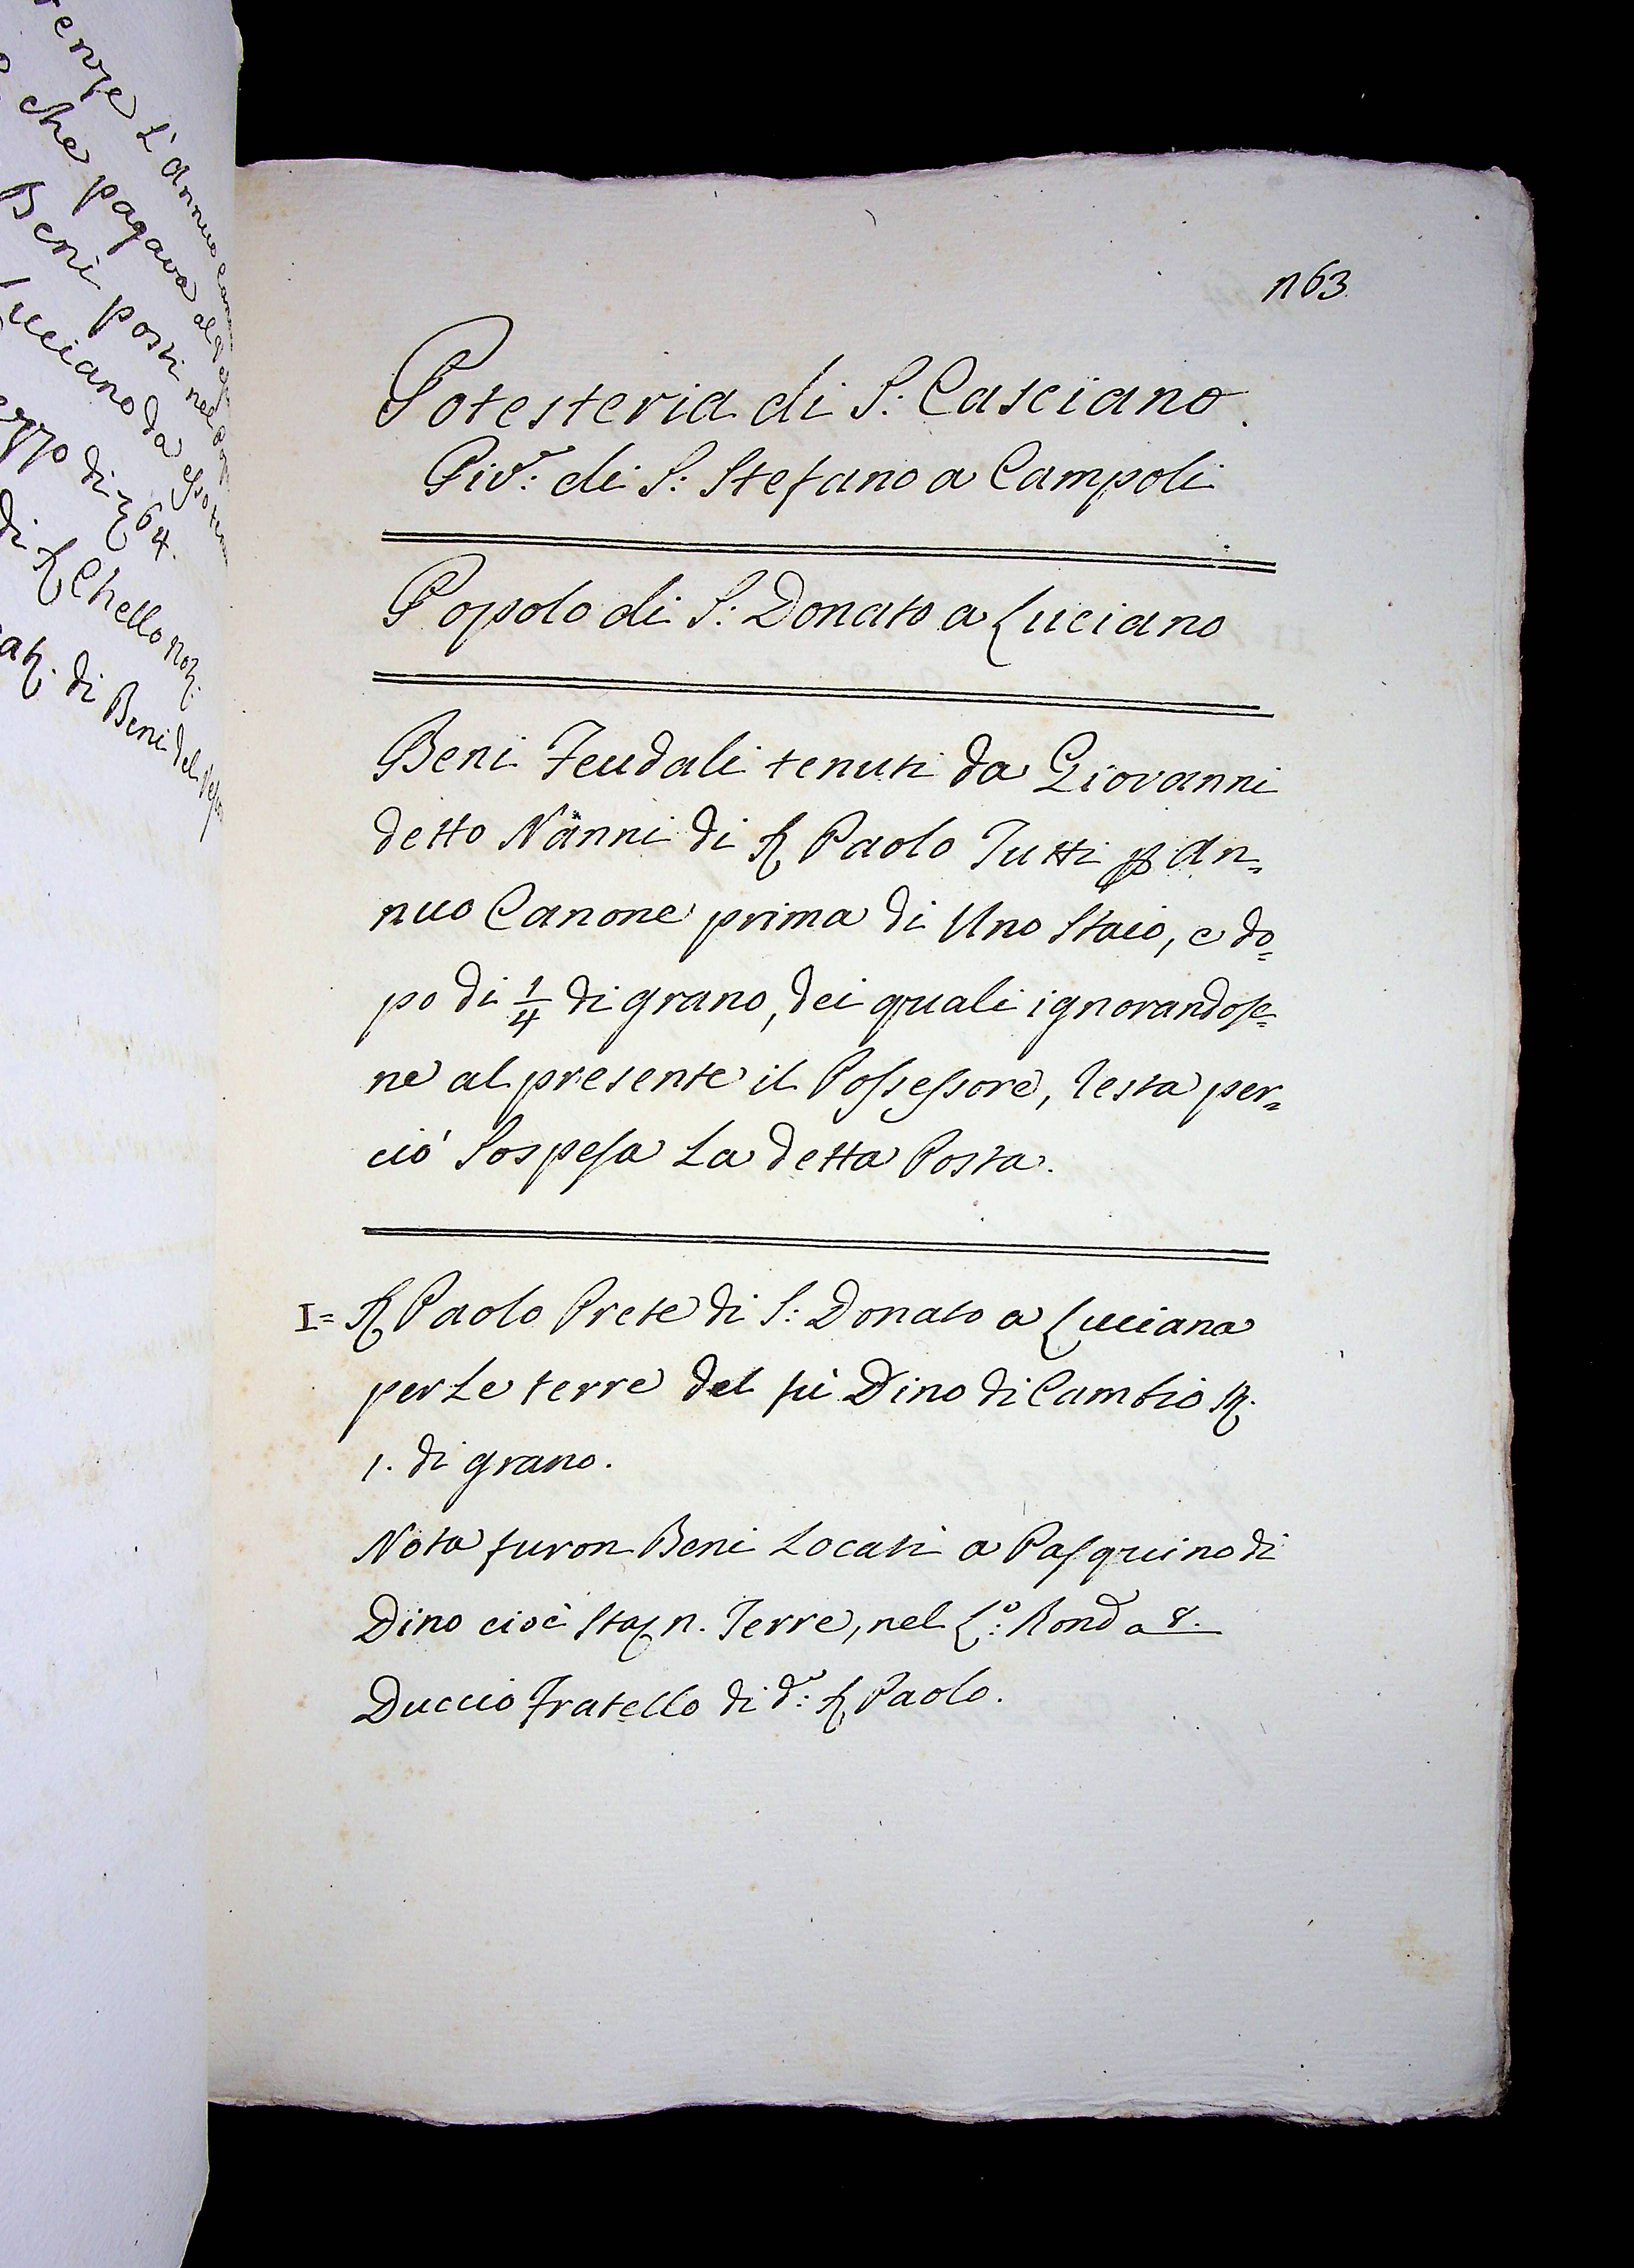 enze L'annuo
che pagava al
Beni posti nel
Lucciano da esso
ezzo di 64.
di S. Chello Not.
di Beni del
n 63.
Potesteria di S: Casciano.
Piv.e: di S: Stefano a Campoli
Popolo di S: Donato a Luciano
Beni Feudali tenuti da Giovanni
detto Nanni di S. Paolo Tutti p. an=
nuo Canone prima di Uno Staio, e do=
po di 1/4 di grano, dei quali ignorandose=
ne al presente il Possessore, resta per=
ciò Sospesa La detta Posta.
I= S. Paolo Prete di S: Donato a Lucciana
per Le terre del fù Dino di Cambio St.
1. di grano.
Nota furon Beni Locati a Pasquino di
Dino cioè Sta. n. Terre, nel L.o: Rond a 8.
Duccio Fratello di d.o: S. Paolo.